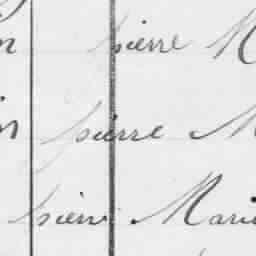 pierre M
pierre M
pierre Marie